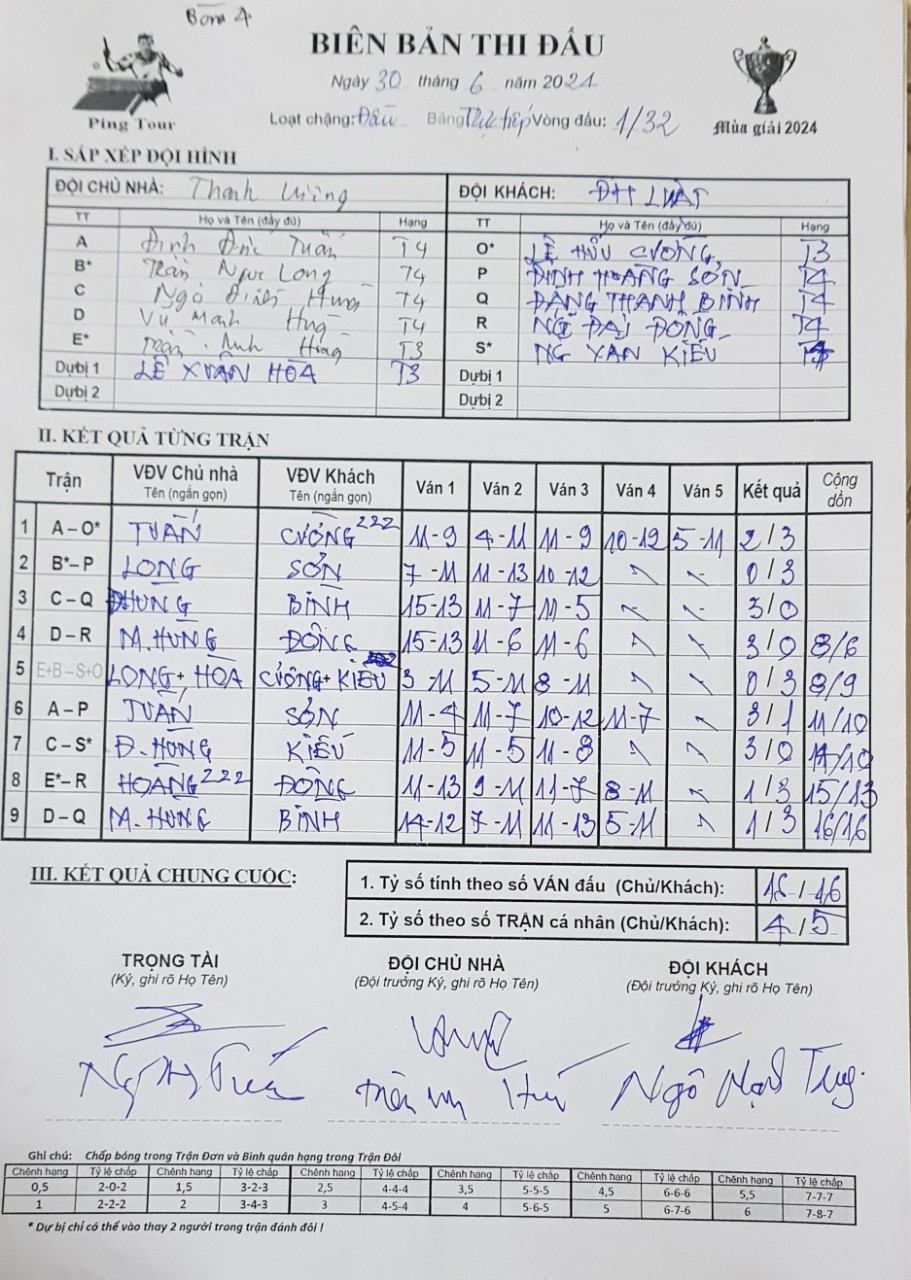 Bàn 4
BIÊN BẢN THI ĐẤU
Ngày 30 tháng 6 năm 2024
Ping Tour
Loạt chặng: Đấu Bảng Trực tiếp Vòng đấu: 1/32
Mùa giải 2024
I. SẮP XẾP ĐỘI HÌNH
ĐỘI CHỦ NHÀ: Thanh Lương ĐỘI KHÁCH: ĐH LUẬT
TT Họ và Tên (đầy đủ) Hạng TT Họ và Tên (đầy đủ) Hạng
A Đinh Đức Tuấn T4 O* LÊ HỮU CƯỜNG T3
B* Trần Ngọc Long T4 P ĐINH HOÀNG SƠN T4
C Ngô Hưng T4 Q ĐẶNG THANH BÌNH T4
D Vũ Mạnh Hùng T4 R NGÔ ĐẠI ĐỒNG T4
E* Trần Anh Hoàng T3 S* NG XAN KIẾU
Dự bị 1 LÊ XUÂN HÒA T3 Dự bị 1
Dự bị 2 Dự bị 2
II. KẾT QUẢ TỪNG TRẬN
Trận VĐV Chủ nhà VĐV Khách Ván 1 Ván 2 Ván 3 Ván 4 Ván 5 Kết quả Cộng dồn
Tên (ngắn gọn) Tên (ngắn gọn)
1 A – O* TUẤN CƯỜNG 222 11-9 4-11 11-9 10-12 5-11 2/3
2 B* – P LONG SƠN 7-11 11-13 10-12 0/3
3 C – Q ĐHƯNG BÌNH 15-13 11-7 11-5 3/0
4 D – R M.HÙNG ĐỒNG 15-13 11-6 11-6 3/0 8/6
5 E+B – S+O LONG + HÒA CƯỜNG + KIẾU 3-11 5-11 8-11 0/3 8/9
6 A – P TUẤN SƠN 11-4 11-7 10-12 11-7 3/1 11/10
7 C – S* Đ.HƯNG KIẾU 11-5 11-5 11-8 3/0 14/10
8 E* – R HOÀNG 222 ĐỒNG 11-13 9-11 11-7 8-11 1/3 15/13
9 D – Q M.HÙNG BÌNH 14-12 7-11 11-13 5-11 1/3 16/16
III. KẾT QUẢ CHUNG CUỘC:
1. Tỷ số tính theo số VÁN đấu (Chủ/Khách): 16/16
2. Tỷ số theo số TRẬN cá nhân (Chủ/Khách): 4/5
TRỌNG TÀI ĐỘI CHỦ NHÀ ĐỘI KHÁCH
(Ký, ghi rõ Họ Tên) (Đội trưởng Ký, ghi rõ Họ Tên) (Đội trưởng Ký, ghi rõ Họ Tên)
Ghi chú: Chấp bóng trong Trận Đơn và Bình quân hạng trong Trận Đôi
Chênh hạng Tỷ lệ chấp Chênh hạng Tỷ lệ chấp Chênh hạng Tỷ lệ chấp Chênh hạng Tỷ lệ chấp Chênh hạng Tỷ lệ chấp Chênh hạng Tỷ lệ chấp
0,5 2-0-2 1,5 3-2-3 2,5 4-4-4 3,5 5-5-5 4,5 6-6-6 5,5 7-7-7
1 2-2-2 2 3-4-3 3 4-5-4 4 5-6-5 5 6-7-6 6 7-8-7
* Dự bị chỉ có thể vào thay 2 người trong trận đánh đôi !